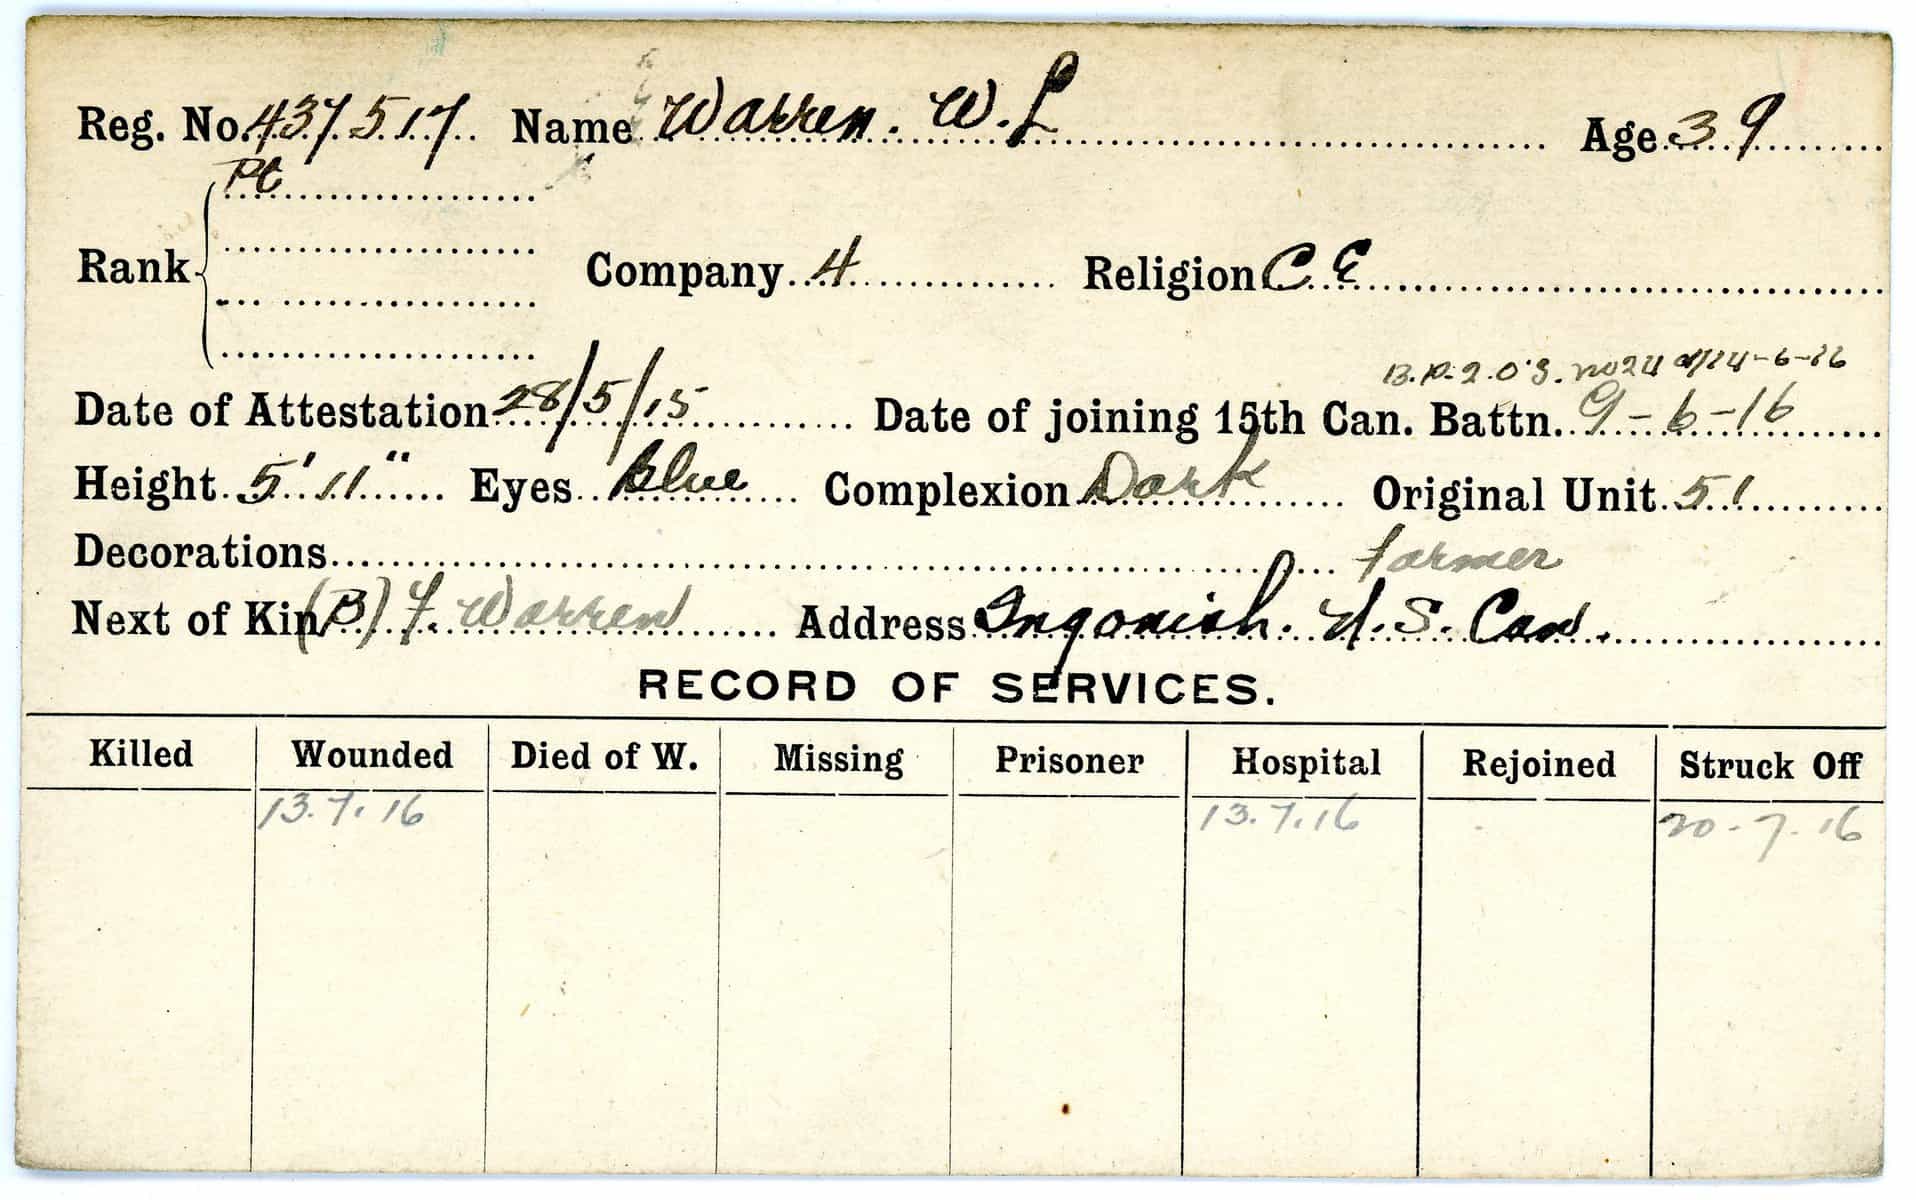 Reg. No. 437517 Name Warren. W. L Age 39
Pt
Rank Company 4 Religion C. E
B.P. 2. O's. no 24 d/24-6-16
Date of Attestation 28/5/15 Date of joining 15th Can. Battn. 9-6-16
Height 5' 11" Eyes Blue Complexion Dark Original Unit 51
Decorations farmer
Next of Kin (B) F. Warren Address Ingonish. N. S. Can.
RECORD OF SERVICES.
Killed Wounded Died of W. Missing Prisoner Hospital Rejoined Struck Off
13.7.16 13.7.16 20-7-16